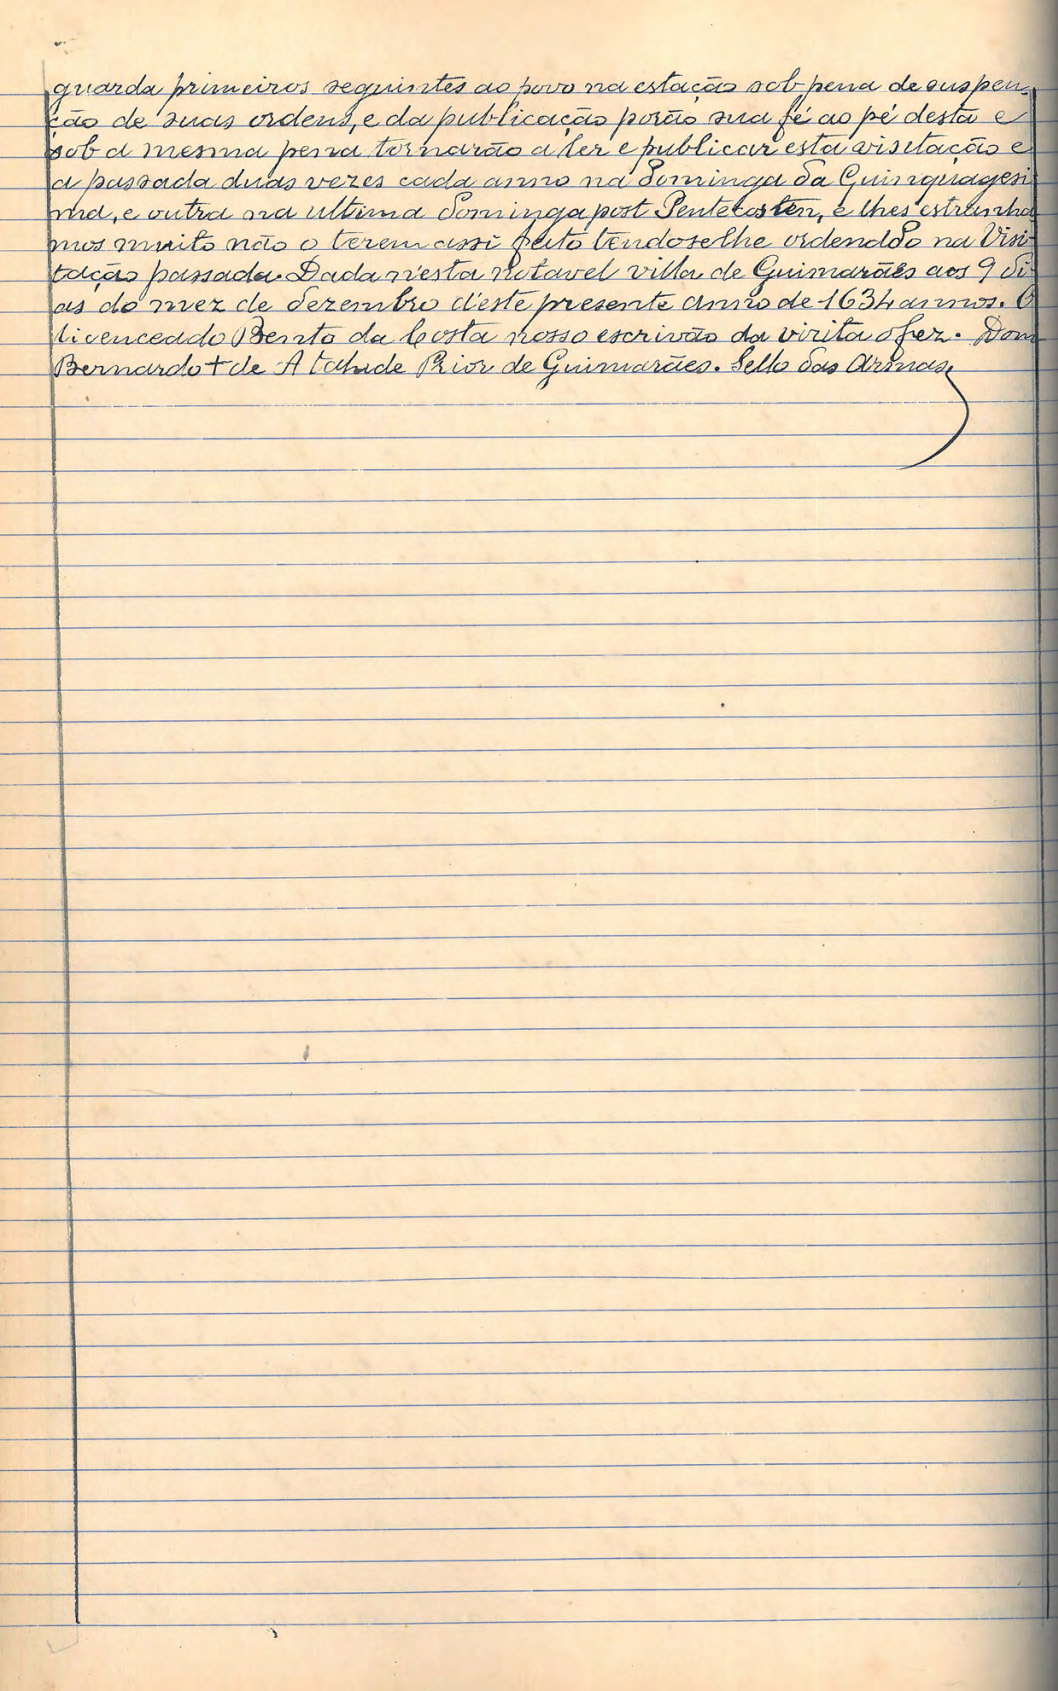 guarda primeiros seguintes ao povo na estação sob pena de suspen-
ção de suas ordens, e da publicação porão sua fé ao pé desta e
sob a mesma pena tornarão a ler e publicar esta visitação e
a passada duas vezes cada anno na dominga da Quinquagesi
ma, e outra na ultima dominga post Pentecosten, e lhes estranha
mos muito não o terem assi feito tendoselhe ordenado na Visi-
tação passada. Dada n'esta notavel villa de Guimarães aos 9 di-
as do mez de dezembro d'este presente anno de 1634 annos. O
licenceado Bento da Costa nosso escrivão da vizita o fez. Dom
Bernardo + de Atahide Prior de Guimarães. Sello das Armas.